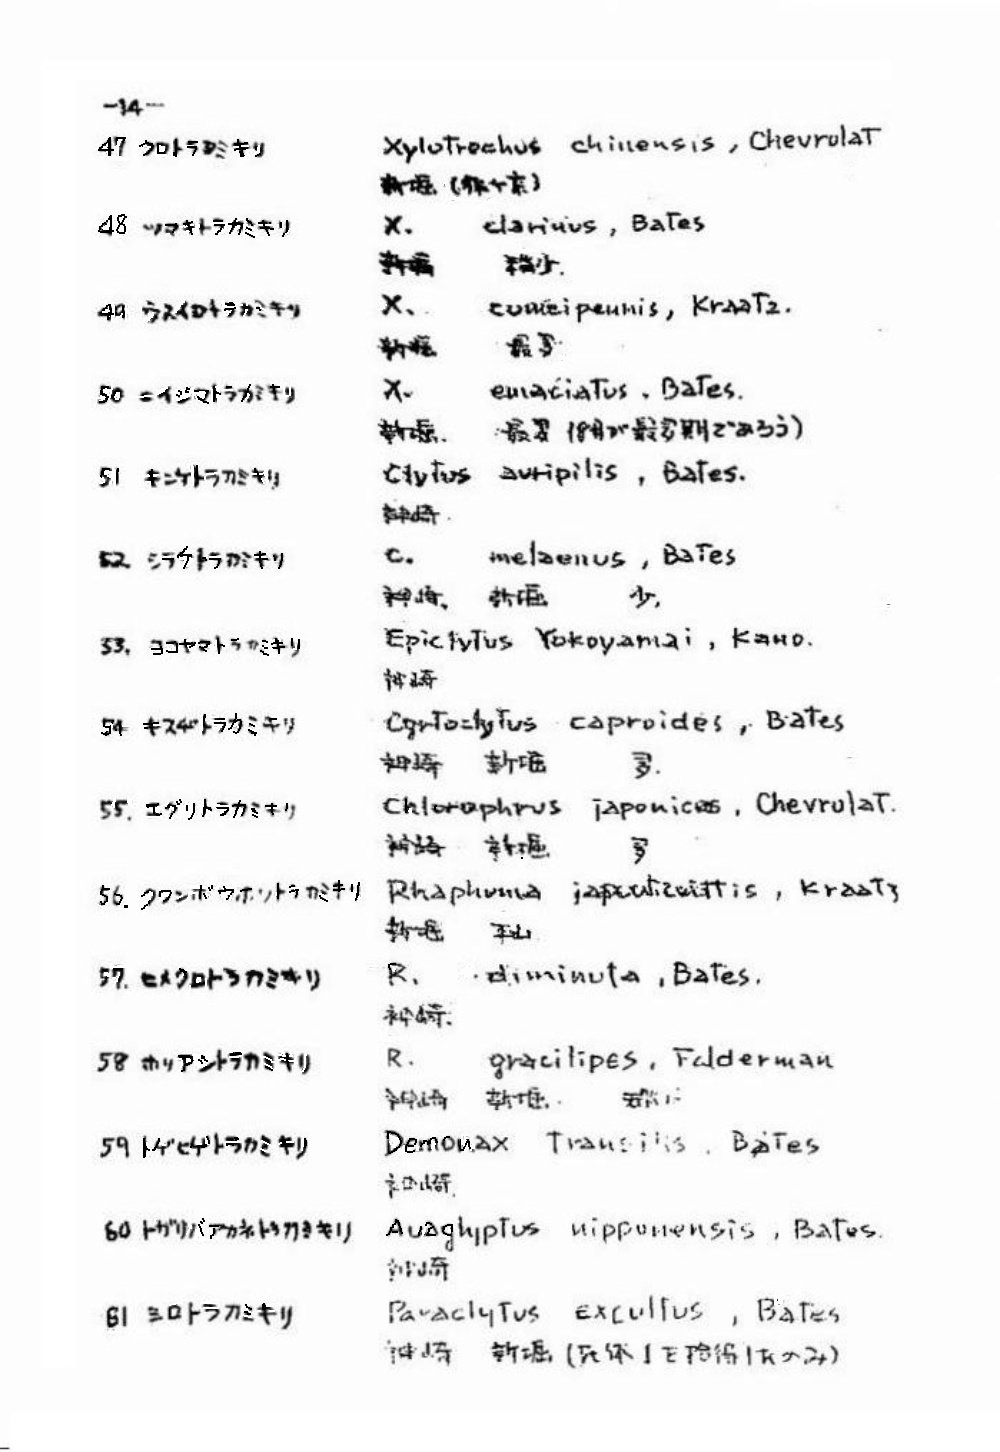 -14-
47 クロトラカミキリ Xylotrechus chinensis, Chevrolat
新堀
48 ツマキトラカミキリ X. clarinus, Bates
新堀 稀少.
49 ウスイロトラカミキリ X. cuneipennis, Kraatz.
新堀 最多
50 ニイジマトラカミキリ X. emaciatus, Bates.
新堀. 最多 (8月が最多期であろう)
51 キンケトラカミキリ Clytus auripilis, Bates.
神崎.
52 シラケトラカミキリ C. melaenus, Bates
神崎、新堀 少,
53. ヨコヤマトラカミキリ Epiclytus Yokoyamai, Kano.
神崎
54 キスヂトラカミキリ Cyrtoclytus caproides, Bates
神崎 新堀 多.
55. エグリトラカミキリ Chlorophrus japonicus, Chevrulat.
神崎 新堀 多
56. クワンボウホソトラカミキリ Rhaphuma Kraatz
新堀 平山
57. ヒメクロトラカミキリ R. diminuta, Bates.
神崎.
58 ホソアシトラカミキリ R. gracilipes, Falderman
神崎 新堀.
59 トゲヒゲトラカミキリ Demonax Transilis. Bates
神崎.
60 トガリバアカネトラカミキリ Anaglyptus nipponensis, Bates.
神崎
61 シロトラカミキリ Paraclytus excultus, Bates
神崎 新堀 (死体1を拾得したのみ)